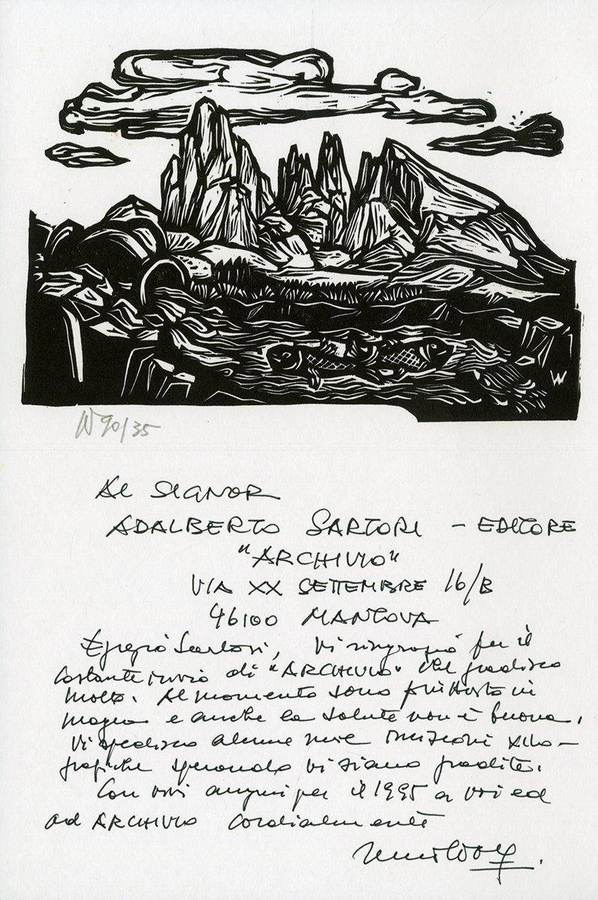 W
W 90/35
Al SIGNOR
ADALBERTO SARTORI - EDITORE
"ARCHIVIO"
VIA XX SETTEMBRE 16/B
46100 MANTOVA
Egregio Sartori, Vi ringrazio per il
costante invio di "ARCHIVIO" che gradisco
molto. Al momento sono piuttosto in
magra e anche la salute non è buona.
Vi spedisco alcune mie incisioni xilo-
grafiche sperando vi siano gradite.
Con vivi auguri per il 1995 a voi ed
ad ARCHIVIO cordialmente